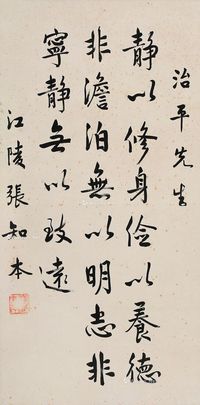 治平先生
静以修身俭以養德
非澹泊無以明志非
寧静無以致遠
江陵張知本